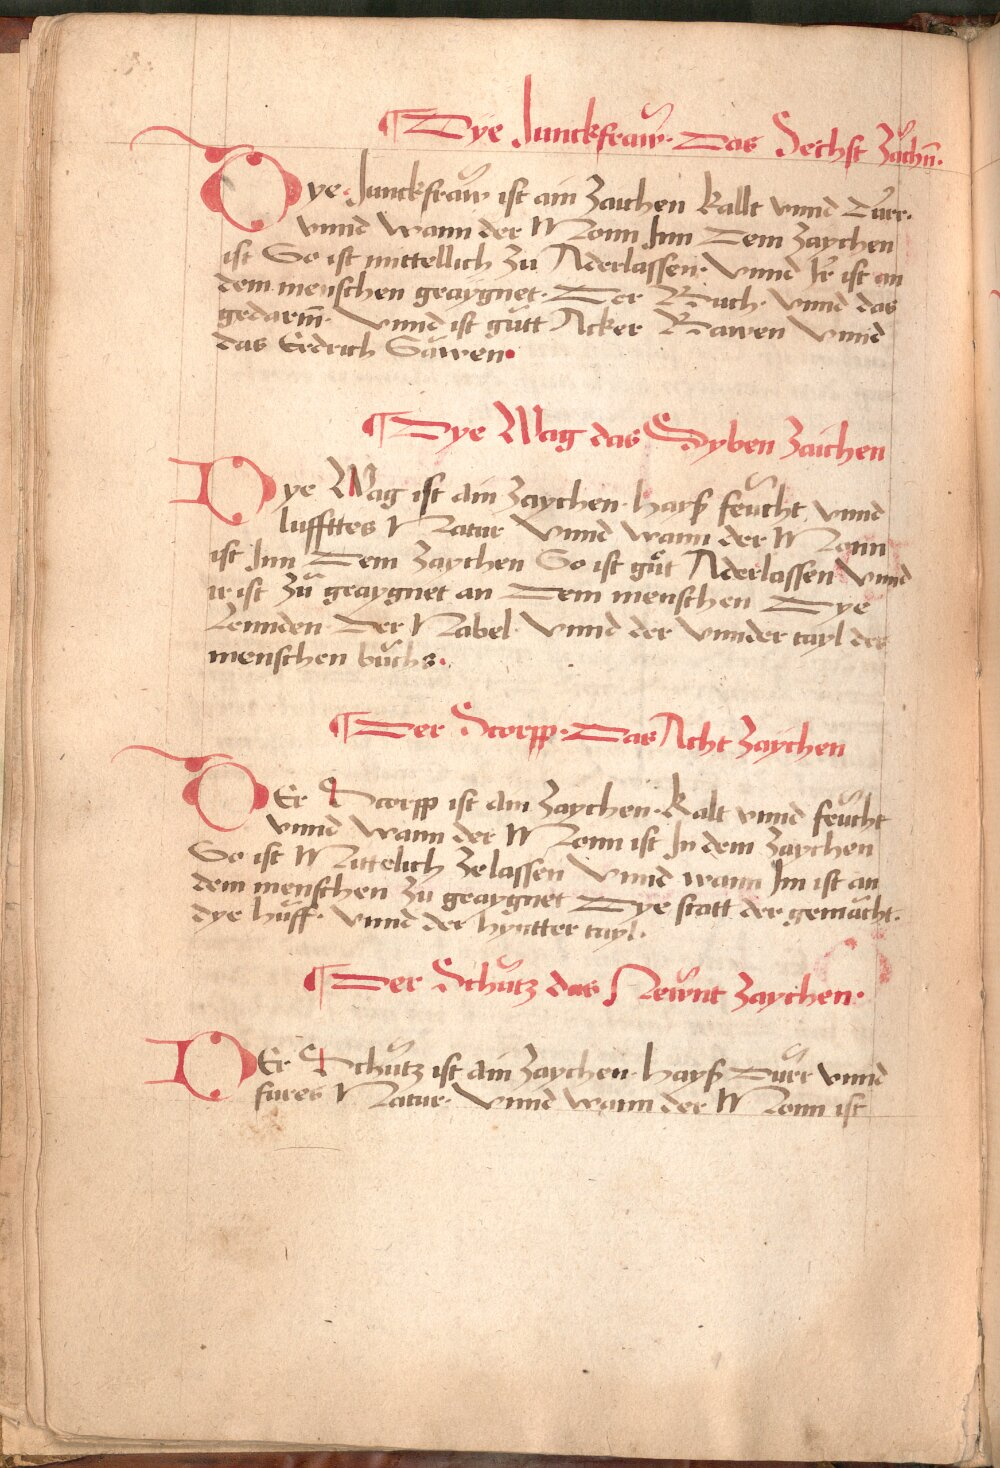 ¶ Dye Junckfraw̆. Das Sechst Zaichn̄.
Dye Junckfraw ist ain Zaichen kallt vnnd Dürr.
vnnd wann der Monn Jnn Dem Zaychen
ist So ist mittellich zu Aderlassen. Vnnd Jr ist an
dem menschen geaygnet. Der Buch. vnnd das
gedarm̄. Vnnd ist gůtt Acker Bawen Vnnd
das Erdrich Säwen.
¶ Dye Wag das Syben Zaichen
Dye Wag ist Ain Zaychen. hayß feücht vnnd
luffttes Natur Vnnd wann der Monn
ist Jnn Dem Zaychen So ist gůt Aderlassen Vnnd
ir ist Zů geaygnet an Dem menschen Dye
Lennden Der Nabel. Vnnd der Vnnder tayl des
menschen bůchs.
¶ Der Scorpp. Das Acht Zaychen
DEr Scorpp ist Ain Zaychen. Kalt vnnd feücht
vnnd wann der Monn ist Jn dem Zaychen
So ist Mittelich Zelassen Vnnd wann Jm ist an
dem menschen Zu geaygnet Dye statt der gemächt.
dye hüff. Vnnd der hyntter tayl.
¶ Der Schütz das Newnt Zaychen.
DEr Schütz ist Ain Zaychen. hayß Dürr vnnd
fures Natur. Vnnd wann der Monn ist